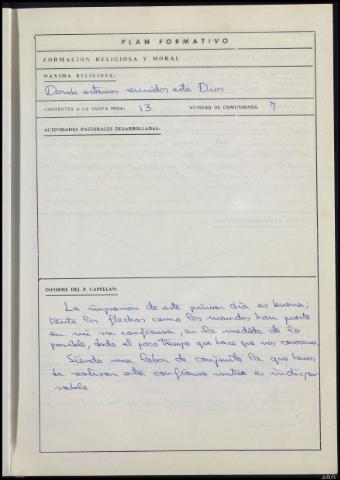 PLAN FORMATIVO
FORMACION RELIGIOSA Y MORAL
MAXIMA RELIGIOSA:
Donde estamos reunidos esta Dios
ASISTENTES A LA SANTA MISA: 13 NUMERO DE COMUNIONES: 7
ACTIVIDADES PASTORALES DESARROLLADAS:
INFORME DEL P. CAPELLAN:
La impresión de este primer dia es buena;
tanto los flechas como los mandos han puesto
en mi su confianza, en la medida de lo
posible, dado el poco tiempo que hace que nos conocemos
Siendo una labor de conjunto la que hemos
de realizar esta confianza mutua es indispen
sable